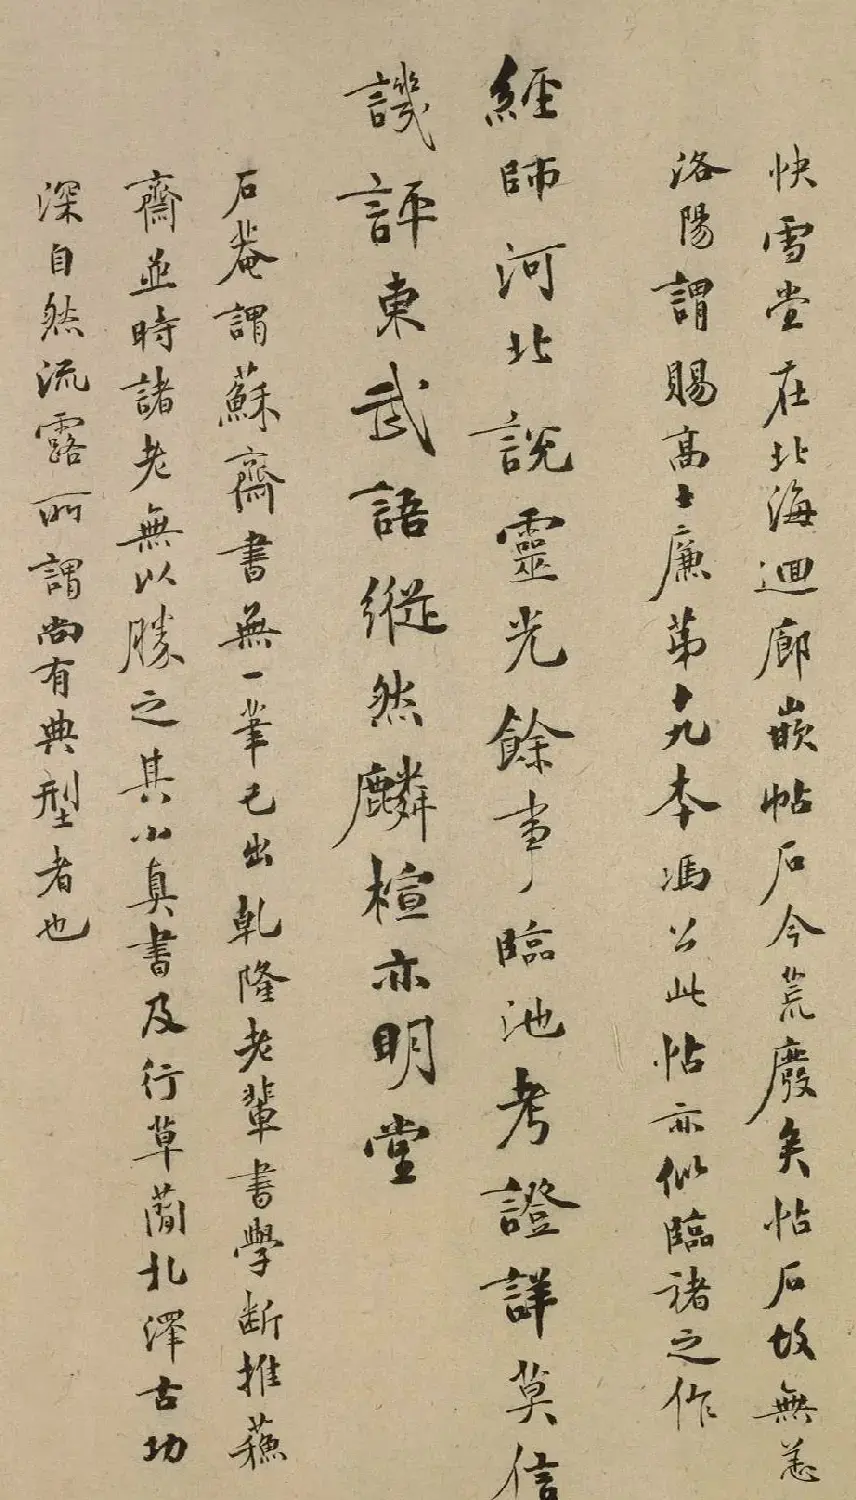 快雪堂在北海迴廊嵌帖石今荒廢矣帖石故無恙
洛陽謂賜高士廉第十九本馮公此帖亦似臨褚之作
經師河北說靈光餘事臨池考證詳莫信
譏評東武語縱然麟楦亦明堂
石菴謂蘇齋書無一筆己出乾隆老輩書學斷推蘇
齋並時諸老無以勝之其小真書及行草蕳札澤古功
深自然流露所謂尚有典型者也